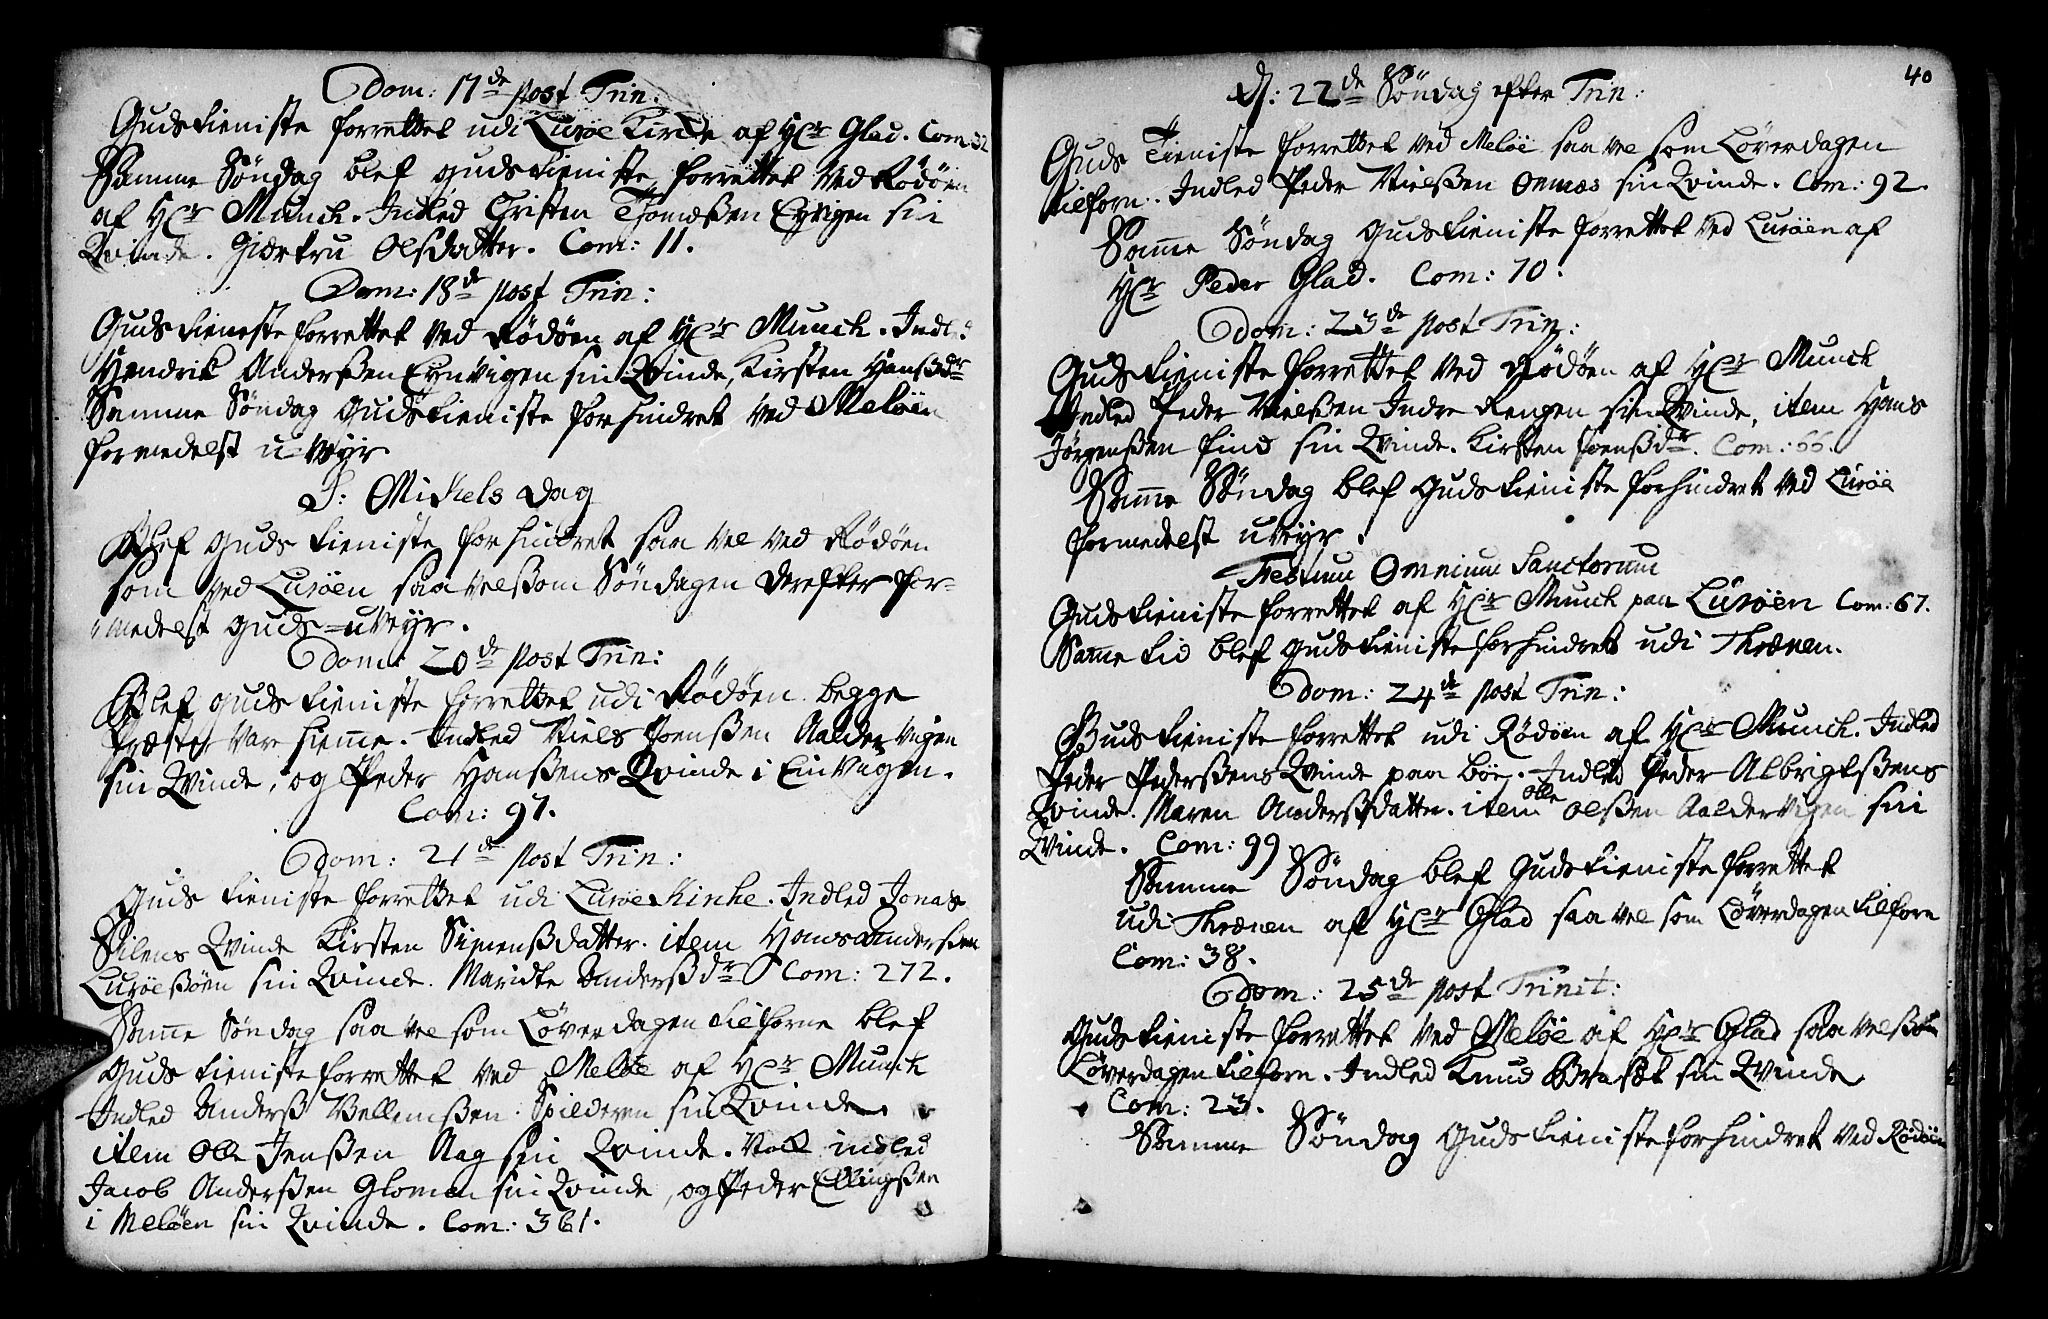 Dom: 17de post Trin:
Guds tieniste forrettet udi Lurøe Kircke af Hr Glad. Com 32
Samme Søndag blef guds tieniste forrettet ved Rødøen
af Hr Munch. Indled Christen Thomæßen Eyvigen sin
Qvinde. Giertru Olsdatter. Com: 11.
Dom: 18de post Trin:
Guds tieneste forrettet ved Rødøen af Hr Munch. Indled
Hendrik Anderßen Eynvigen sin Qvinde, Kirsten Hansdr
Samme Søndag Gudstieniste forhindret ved Meløen
formedelst u-veyr
S: Mikels Dag
Blef guds tieniste forhindret saa vel ved Rødøen
som ved Lurøen saa velsom Søndagen derefter for-
medelst guds-uveyr.
Dom: 20de post Trin:
Blef guds tieniste forrettet udi Rødøen begge
Præster var hieme. Indled Niels Joenßen Aaldervigen
sin Qvinde, og Peder Hanßens Qvinde i Einvigen.
Com: 97.
Dom: 21de post Trin:
Guds tieniste forrettet udi Lurøe Kirke. Indled Jonas
Silens Qvinde Kirsten Simensdatter. item Hans Anderßen
Lurøesøen sin Qvinde. Maridte Andersdr Com: 272.
Same Søndag saa vel som Løverdagen tilforne blef
Guds tieniste forrettet ved Meløe af Hr Munch
Indled Anders Vellemßen Spilderen sin Qvinde.
item Olle Jenßen Aag sin Qvinde. Noch indled
Jacob Anderßen Glomen sin Qvinde, og Peder Ellingßen
i Meløen sin Qvinde. Com: 361.
40
D: 22de Søndag efter Trin:
Guds Tieniste forrettet ved Meløe saa vel som Løverdagen
tilforn. Indled Peder Nielßen Onnæs sin Qvinde. Com: 92.
Same Søndag Gudstieniste forrettet ved Lurøen af
Hr Peder Glad. Com: 70.
Dom: 23de post Trin:
Guds tieniste forrettet ved Rødøen af Hr Munch
Indled Peder Nielßen Indre Rengen sin Qvinde, item Hans
Jørgenßen sin Qvinde. Kirsten Joensdr. Com: 66.
Same Søndag blef Guds tieniste forhindret ved Lurøe
formedelst uveyr.
Festum Omnium Sanctorum
Guds tieniste forrettet af Hr Munch paa Lurøen Com: 67.
Same tid blef gudstieniste forhindret udi Thrænen.
Dom: 24de post Trin:
Guds tieniste forrettet udi Rødøen af Hr Munch. Indled
Peder Pederßens Qvinde paa Bøe. Indled Peder Albrigtßens
Qvinde. Maren Andersdatter. item Olle Olßen Aaldervigen sin
Qvinde. Com: 99
Samme Søndag blef Gudstieniste forrettet
udi Thrænen af Hr Glad saa vel som Løverdagen tilforn
Com: 38.
Dom: 25de post Trinit:
Gudstieniste forrettet ved Meløe af Hr Glad saa velsom
Løverdagen tilforn. Indled Knud Brasæt sin Qvinde
Com: 23.
Samme Søndag Guds tieniste forhindret ved Rødøen